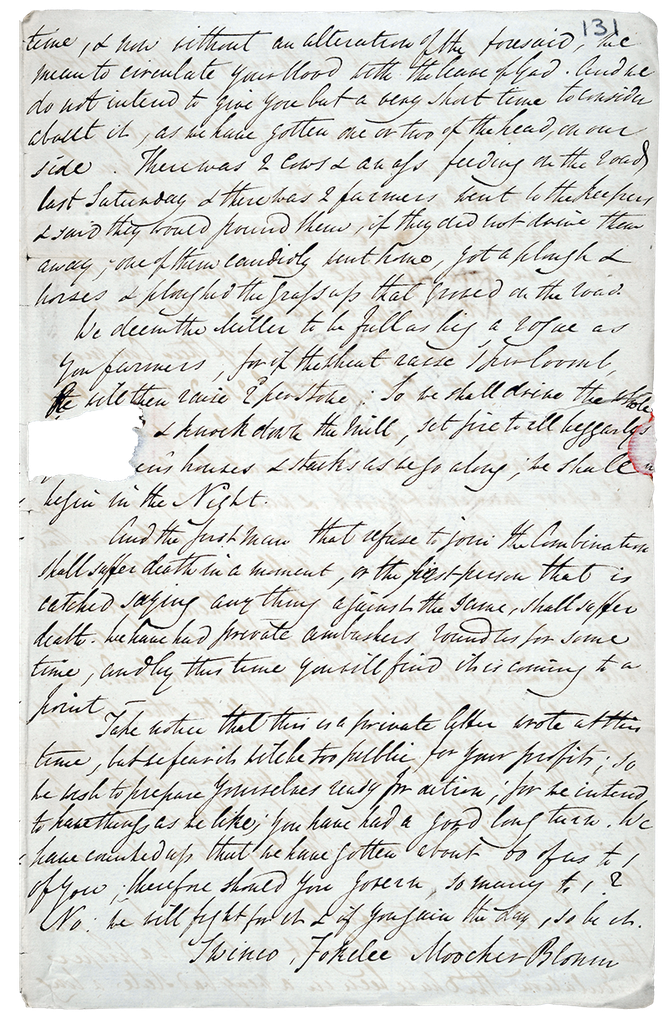 131
time, & now without an alteration of the foresaid, we
mean to circulate your blood with the leave of God. And we
do not intend to give you but a very short time to consider
about it, as we have gotten one or two of the head, on our
side. There was 2 cows & an ass feeding on the road
last Saturday & there was 2 farmers went to the keepers
& said they would pound them, if they did not drive them
away; one of them candidly went home, got a plough &
horses & ploughed the grass up that growed on the road.
We deem the Miller to be full as big a rogue as
you farmers, for if the wheat raise 1s per Coomb,
He will then raise 2d per Stone; So we shall drive the whole
& knock down the Mill, set fire to all beggarly
houses & stacks as we go along; we shall
begin in the Night.
And the first man that refuse to join the Combination
shall suffer death in a moment, or the first person that is
catched saying anything against the same, shall suffer
death. We have had private ambushers round us for some
time, and by this time you will find it is coming to a
point —
Take notice that this is a private letter wrote at this
time, but we fear it will be too public for your profits; so
we wish to prepare yourselves ready for action; for we intend
to have things as we like; you have had a good long turn. We
have counted up that we have gotten about 60 of us to 1
of you; therefore should you govern, so many to 1?
No: we will fight for it & if you gain the day, so be it.